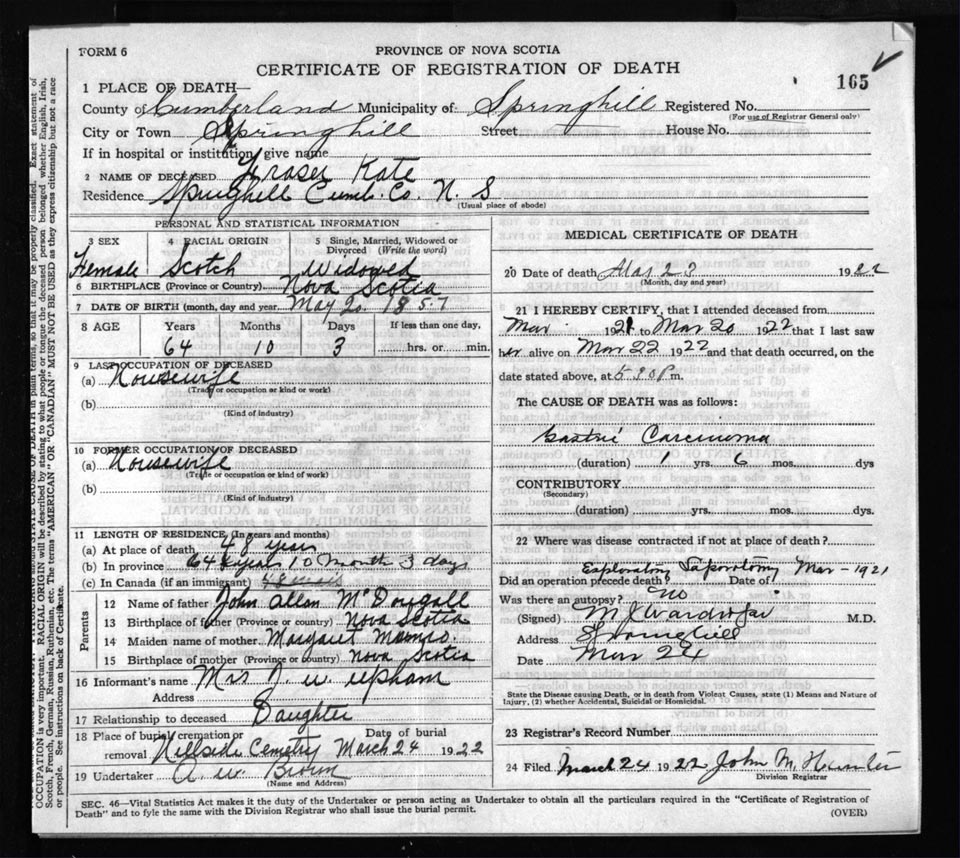 FORM 6
PROVINCE OF NOVA SCOTIA
CERTIFICATE OF REGISTRATION OF DEATH
165
1 PLACE OF DEATH—
County of Cumberland Municipality of Springhill Registered No.
(For use of Registrar General only)
City or Town Springhill Street House No.
If in hospital or institution, give name
2 NAME OF DECEASED Fraser Kate
Residence Springhill Cumb. Co. N. S
(Usual place of abode)
PERSONAL AND STATISTICAL INFORMATION
3 SEX 4 RACIAL ORIGIN 5 Single, Married, Widowed or Divorced (Write the word)
Female Scotch Widowed
6 BIRTHPLACE (Province or Country) Nova Scotia
7 DATE OF BIRTH (month, day and year) May 20. 1857
8 AGE Years Months Days If less than one day,
64 10 3 hrs. or min.
9 LAST OCCUPATION OF DECEASED
(a) Housewife
(Trade or occupation or kind or work)
(b)
(Kind of industry)
10 FORMER OCCUPATION OF DECEASED
(a) Housewife
(Trade or occupation or kind of work)
(b)
(Kind of industry)
11 LENGTH OF RESIDENCE (In years and months)
(a) At place of death 48 years
(b) In province 64 years 10 month 3 days
(c) In Canada (if an immigrant) 48 years
Parents
12 Name of father John Allan McDougall
13 Birthplace of father (Province or country) Nova Scotia
14 Maiden name of mother Margaret Munro.
15 Birthplace of mother (Province or country) Nova Scotia
16 Informant's name Mrs J. W. Upham
Address
17 Relationship to deceased Daughter
18 Place of burial, cremation or removal Hillside Cemetry Date of burial March 24 1922
19 Undertaker A. W. Brown
(Name and Address)
MEDICAL CERTIFICATE OF DEATH
20 Date of death Mar 23 1922
(Month, day and year)
21 I HEREBY CERTIFY, that I attended deceased from
Mar 1921 to Mar 20 1922 that I last saw
her alive on Mar 22 1922 and that death occurred, on the
date stated above, at 5.30 P m.
The CAUSE OF DEATH was as follows:
Gastric Carcinoma
(duration) 1 yrs. 6 mos. dys
CONTRIBUTORY
(Secondary)
(duration) yrs. mos. dys.
22 Where was disease contracted if not at place of death?
Exploratory Laporotomy Mar - 1921
Did an operation precede death? Date of
Was there an autopsy? no
(Signed) M.D.
Address Springhill
Date Mar 24
State the Disease causing Death, or in death from Violent Causes, state (1) Means and Nature of Injury, (2) whether Accidental, Suicidal or Homicidal.
23 Registrar's Record Number
24 Filed March 24 1922 John M. Hunter
Division Registrar
SEC. 46—Vital Statistics Act makes it the duty of the Undertaker or person acting as Undertaker to obtain all the particulars required in the "Certificate of Registration of
Death" and to fyle the same with the Division Registrar who shall issue the burial permit.
(OVER)
OCCUPATION is very important. RACIAL ORIGIN will be described by stating to what people or tongue the deceased person belonged whether English, Irish,
Scotch, French, German, Russian, Ruthenian, etc. The terms "AMERICAN" OR "CANADIAN" MUST NOT BE USED as they express citizenship but not a race
or people. See instructions on back of Certificate.